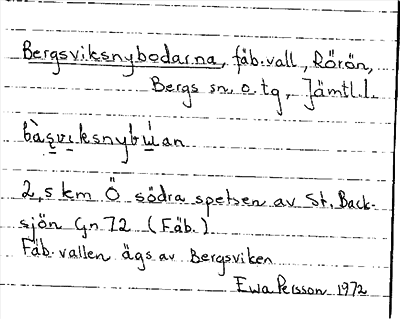 Bergsviksnybodarna, fäb.vall, Rörön,
Bergs sn o. tg, Jämtl.l.
bàşvı̣ksnybẃan
2,5 km Ö södra spetsen av St. Back-
sjön Gn 72 (Fäb.)
Fäb. vallen ägs av Bergsviken
Ewa Persson 1972